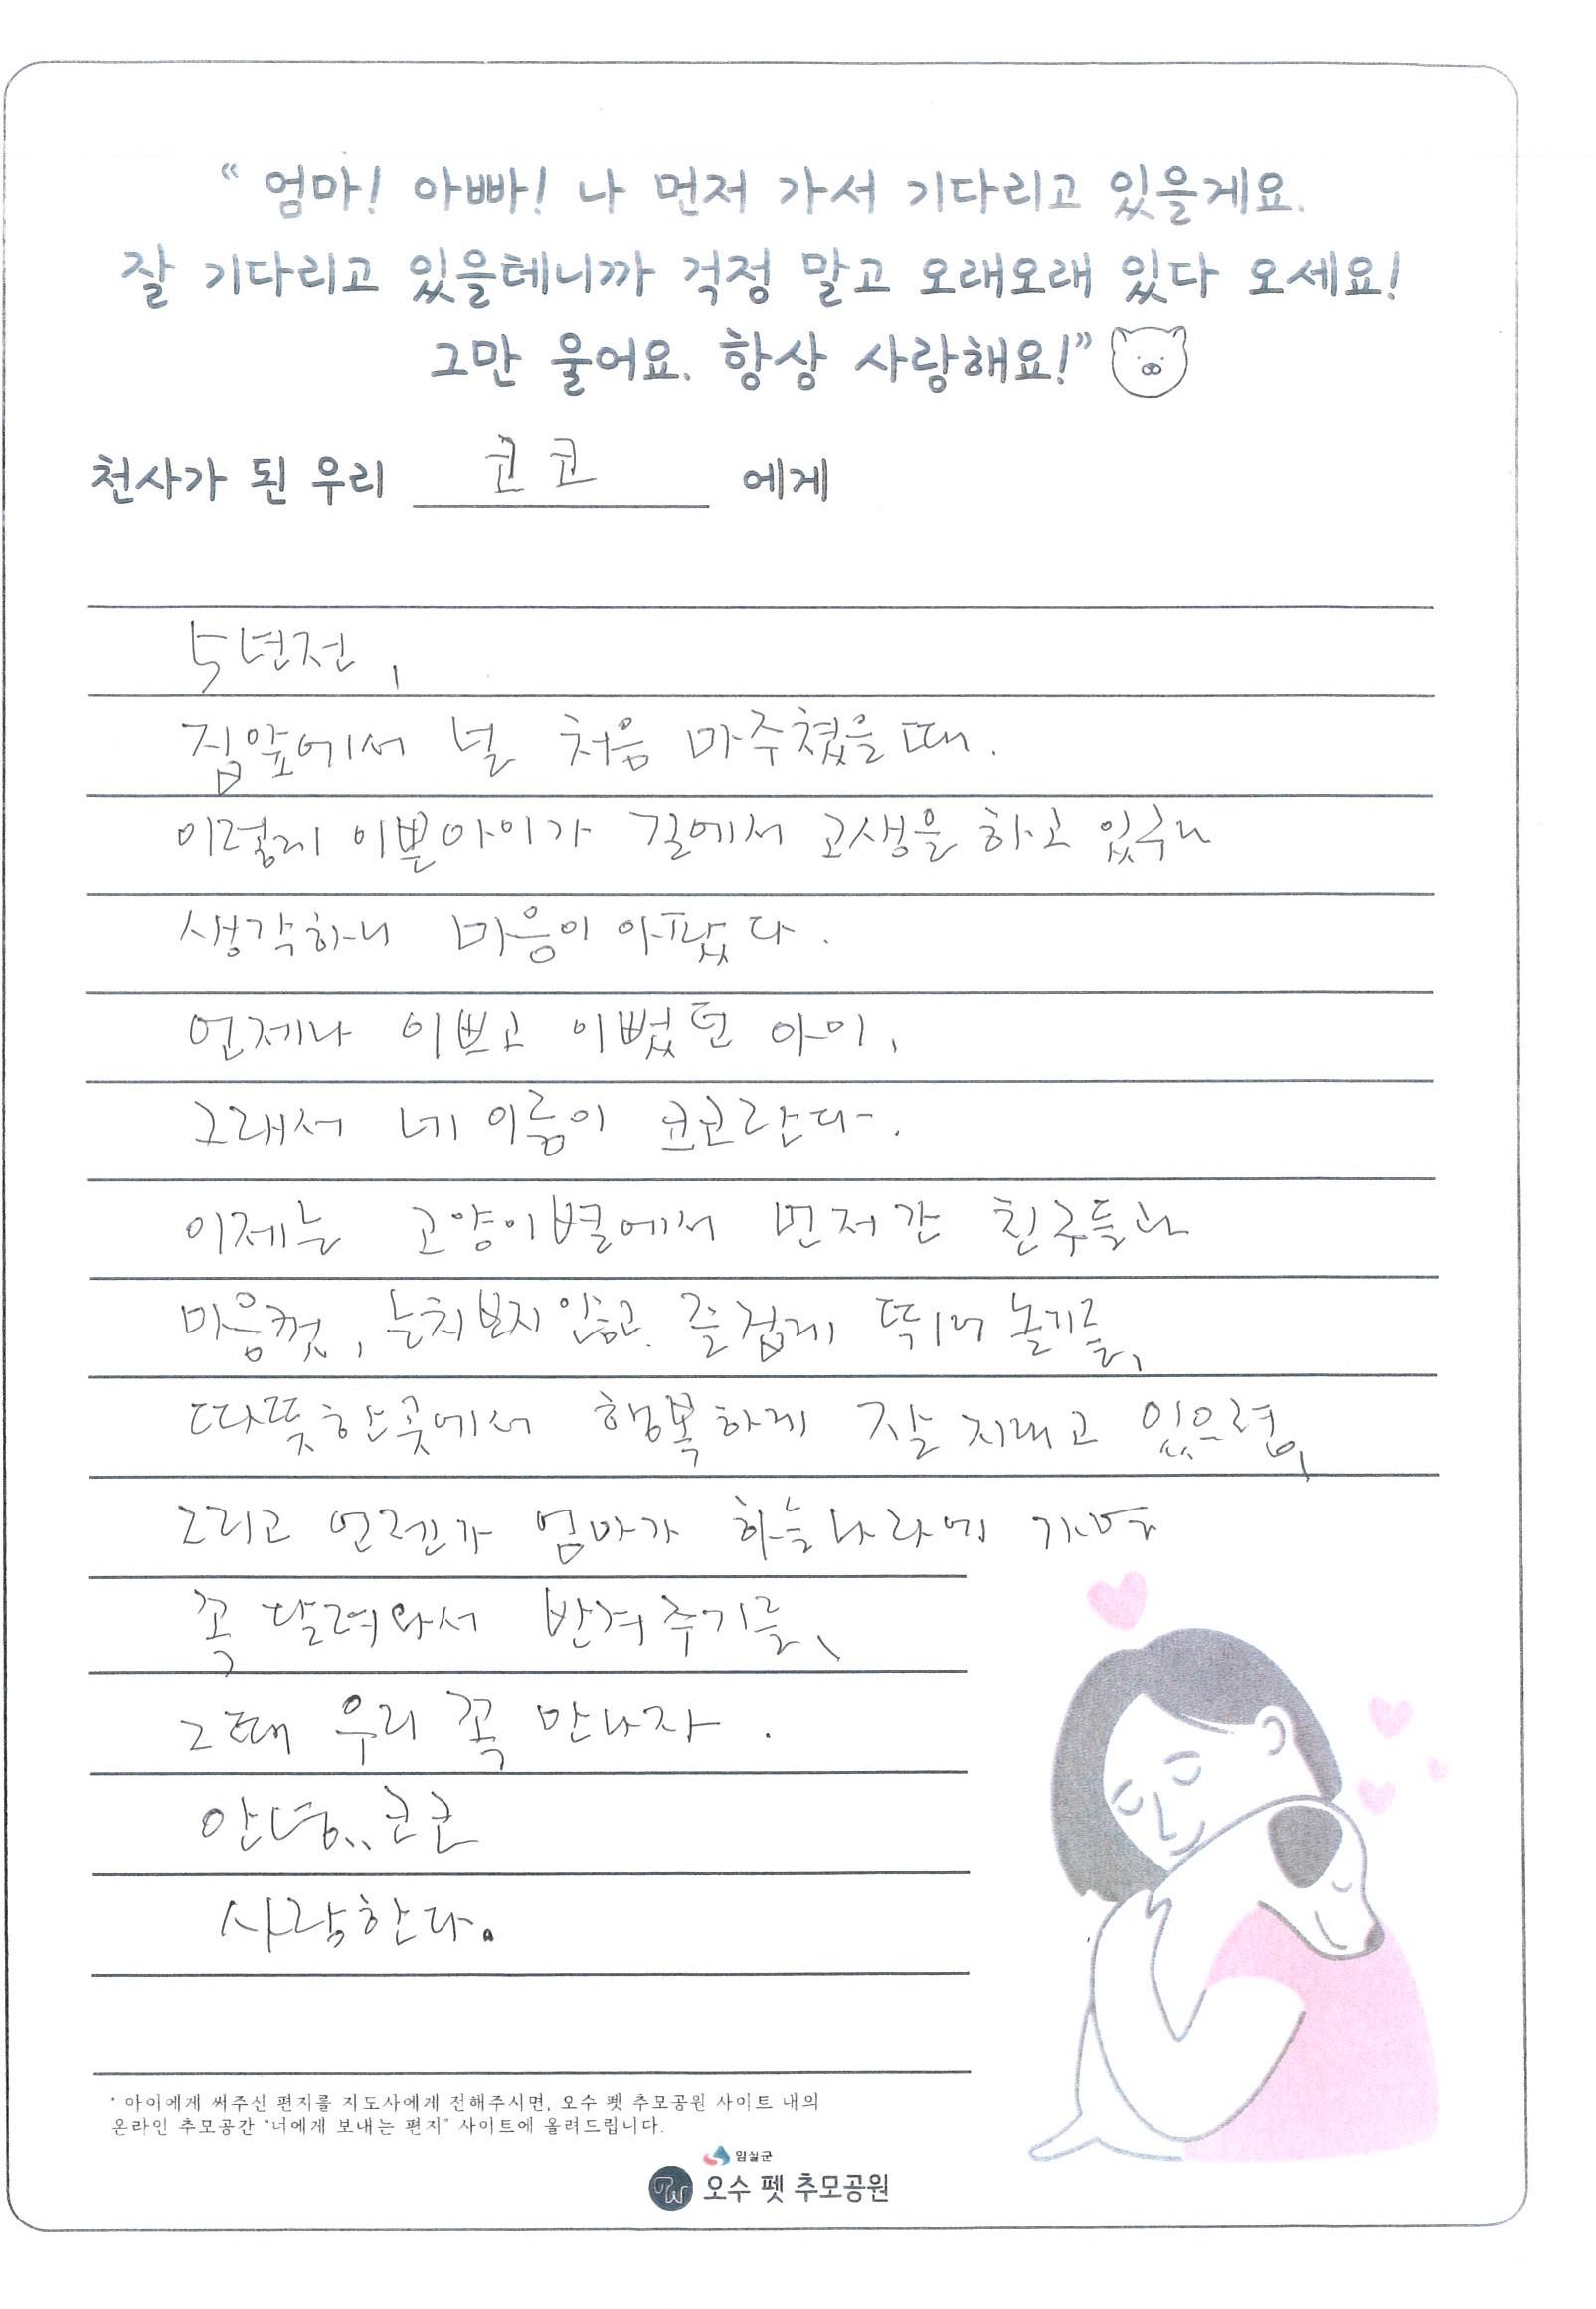 “ 엄마! 아빠! 나 먼저 가서 기다리고 있을게요.
잘 기다리고 있을테니까 걱정 말고 오래오래 있다 오세요!
그만 울어요. 항상 사랑해요!”
천사가 된 우리 코코 에게
5년전,
집앞에서 널 처음 마주쳤을때.
이렇게 이쁜아이가 길에서 고생을 하고 있구나
생각하니 마음이 아팠다.
언제나 이쁘고 이뻤던 아이,
그래서 네 이름이 코코란다.
이제는 고양이별에서 먼저간 친구들과
마음껏, 눈치보지 않고. 즐겁게 뛰어 놀기를,
따뜻한곳에서 행복하게 잘 지내고 있으렴,
그리고 언젠가 엄마가 하늘나라에 가면
꼭 달려와서 반겨주기를,
그때 우리 꼭 만나자.
안녕.. 코코
사랑한다.
* 아이에게 써주신 편지를 지도사에게 전해주시면, 오수 펫 추모공원 사이트 내의
온라인 추모공간 "너에게 보내는 편지" 사이트에 올려드립니다.
임실군
오수 펫 추모공원